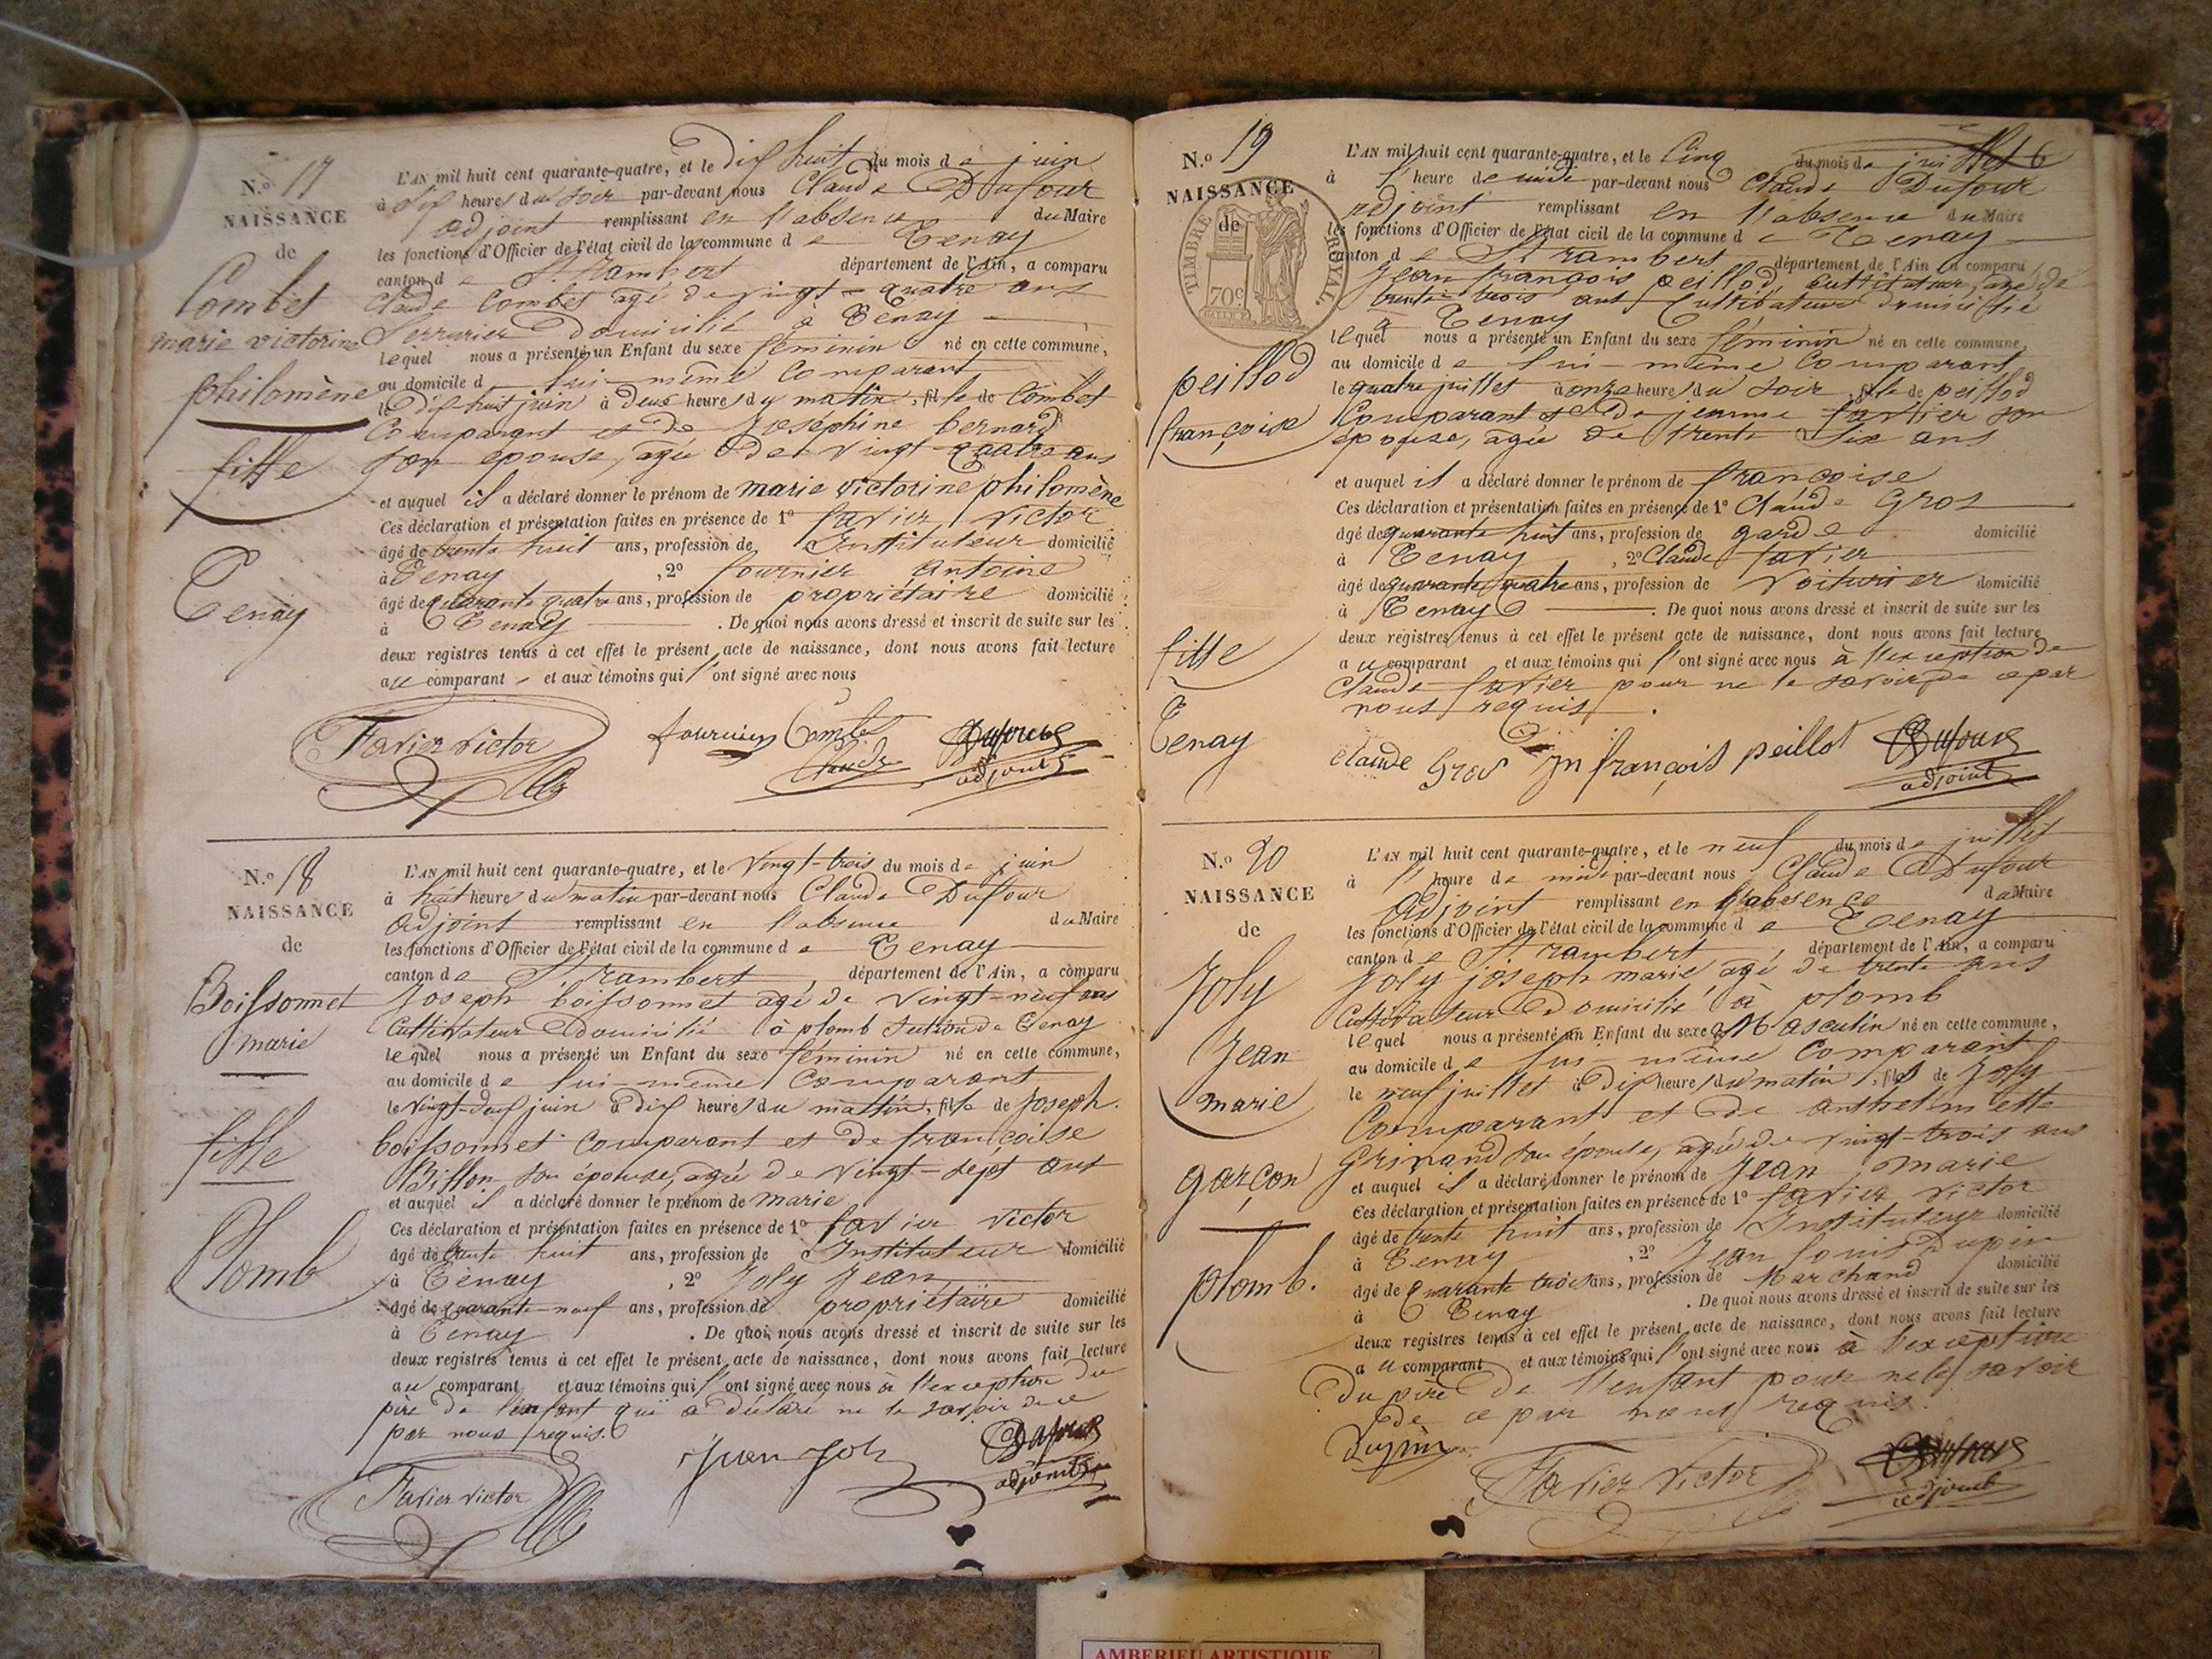 N.º 17
NAISSANCE
de
Combet
marie victorine
philomène
fille
Tenay
L'AN mil huit cent quarante-quatre, et le dix huit du mois de juin
à six heures du soir par-devant nous Claude Dufour
adjoint remplissant en l'absence du Maire
les fonctions d'Officier de l'état civil de la commune de Tenay
canton de St. rambert département de l'Ain, a comparu
Claude Combet agé de vingt-quatre ans
Serrurier domicilié à Tenay
lequel nous a présenté un Enfant du sexe féminin né en cette commune,
au domicile de lui-même Comparant
le dix-huit juin à deux heures du matin, fille de Combet
Comparant et de Joséphine bernard
son epouse, agée de vingt-quatre ans
et auquel il a déclaré donner le prénom de marie victorine philomène
Ces déclaration et présentation faites en présence de 1º favier victor
âgé de trente huit ans, profession de Instituteur domicilié
à Tenay , 2º fournier antoine
âgé de quarante quatre ans, profession de propriétaire domicilié
à Tenay . De quoi nous avons dressé et inscrit de suite sur les
deux registres tenus à cet effet le présent acte de naissance, dont nous avons fait lecture
au comparant et aux témoins qui l'ont signé avec nous
Favier victor fournier Combet Claude Dufour adjoint
N.º 18
NAISSANCE
de
Boissonnet
marie
fille
Plomb
L'AN mil huit cent quarante-quatre, et le vingt-trois du mois de juin
à huit heures du matin par-devant nous Claude Dufour
adjoint remplissant en l'absence du Maire
les fonctions d'Officier de l'état civil de la commune de Tenay
canton de St. rambert, département de l'Ain, a comparu
Joseph boissonnet agé de vingt-neuf ans
Cultivateur domicilié à plomb section de Tenay
lequel nous a présenté un Enfant du sexe féminin né en cette commune,
au domicile de lui-même Comparant
le vingt-deux juin à dix heures du matin, fille de Joseph
boissonnet Comparant et de françoise
Billon son épouse, agée de vingt-sept ans
et auquel il a déclaré donner le prénom de marie
Ces déclaration et présentation faites en présence de 1º favier victor
âgé de trente huit ans, profession de Instituteur domicilié
à Tenay , 2º Joly Jean
âgé de quarante-neuf ans, profession de propriétaire domicilié
à Tenay . De quoi nous avons dressé et inscrit de suite sur les
deux registres tenus à cet effet le présent acte de naissance, dont nous avons fait lecture
au comparant et aux témoins qui l'ont signé avec nous à l'exception du
père de l'enfant qui a déclaré ne le savoir de ce
par nous requis.
Favier victor Jean Joly Dufour adjoint
N.º 19
NAISSANCE
de
TIMBRE ROYAL.
70c
peillod
françoise
fille
Tenay
L'AN mil huit cent quarante-quatre, et le Cinq du mois de juillet
à l'heure de midi par-devant nous Claude Dufour
adjoint remplissant en l'absence du Maire
les fonctions d'Officier de l'état civil de la commune de Tenay
canton de St rambert département de l'Ain a comparu
Jean françois peillod, Cultivateur, agé de
trente trois ans Cultivateur domicilié
à Tenay
lequel nous a présenté un Enfant du sexe féminin né en cette commune,
au domicile de lui-même Comparant
le quatre juillet à onze heures du soir, fille de peillod
Comparant et de jeanne favier son
epouse, agée de trente six ans
et auquel il a déclaré donner le prénom de françoise
Ces déclaration et présentation faites en présence de 1º Claude Gros
âgé de quarante huit ans, profession de garde domicilié
à Tenay , 2º Claude favier
âgé de quarante quatre ans, profession de Voiturier domicilié
à Tenay . De quoi nous avons dressé et inscrit de suite sur les
deux registres tenus à cet effet le présent acte de naissance, dont nous avons fait lecture
au comparant et aux témoins qui l'ont signé avec nous à l'exception de
Claude favier pour ne le savoir de ce par
nous requis.
Claude Gros Jn françois peillot Dufour adjoint
N.º 20
NAISSANCE
de
Joly
Jean
marie
garçon
plomb.
L'AN mil huit cent quarante-quatre, et le neuf du mois de juillet
à l'heure de midi par-devant nous Claude Dufour
adjoint remplissant en l'absence du Maire
les fonctions d'Officier de l'état civil de la commune de Tenay
canton de St. rambert, département de l'Ain, a comparu
Joly joseph marie, agé de trente ans
Cultivateur domicilié à plomb
lequel nous a présenté un Enfant du sexe Masculin né en cette commune,
au domicile de lui-même Comparant
le neuf juillet à dix heures du matin, fils de Joly
Comparant et de anthelmette
Grinand son épouse, agée de vingt-trois ans
et auquel il a déclaré donner le prénom de Jean marie
Ces déclaration et présentation faites en présence de 1º favier victor
âgé de trente huit ans, profession de Instituteur domicilié
à Tenay , 2º Jean louis Dupin
âgé de Quarante trois ans, profession de Marchand domicilié
à Tenay . De quoi nous avons dressé et inscrit de suite sur les
deux registres tenus à cet effet le présent acte de naissance, dont nous avons fait lecture
au comparant et aux témoins qui l'ont signé avec nous à l'exception
du père de l'enfant pour ne le savoir
de ce par nous requis.
Dupin Favier Victor Dufour adjoint
AMBERIEU ARTISTIQUE